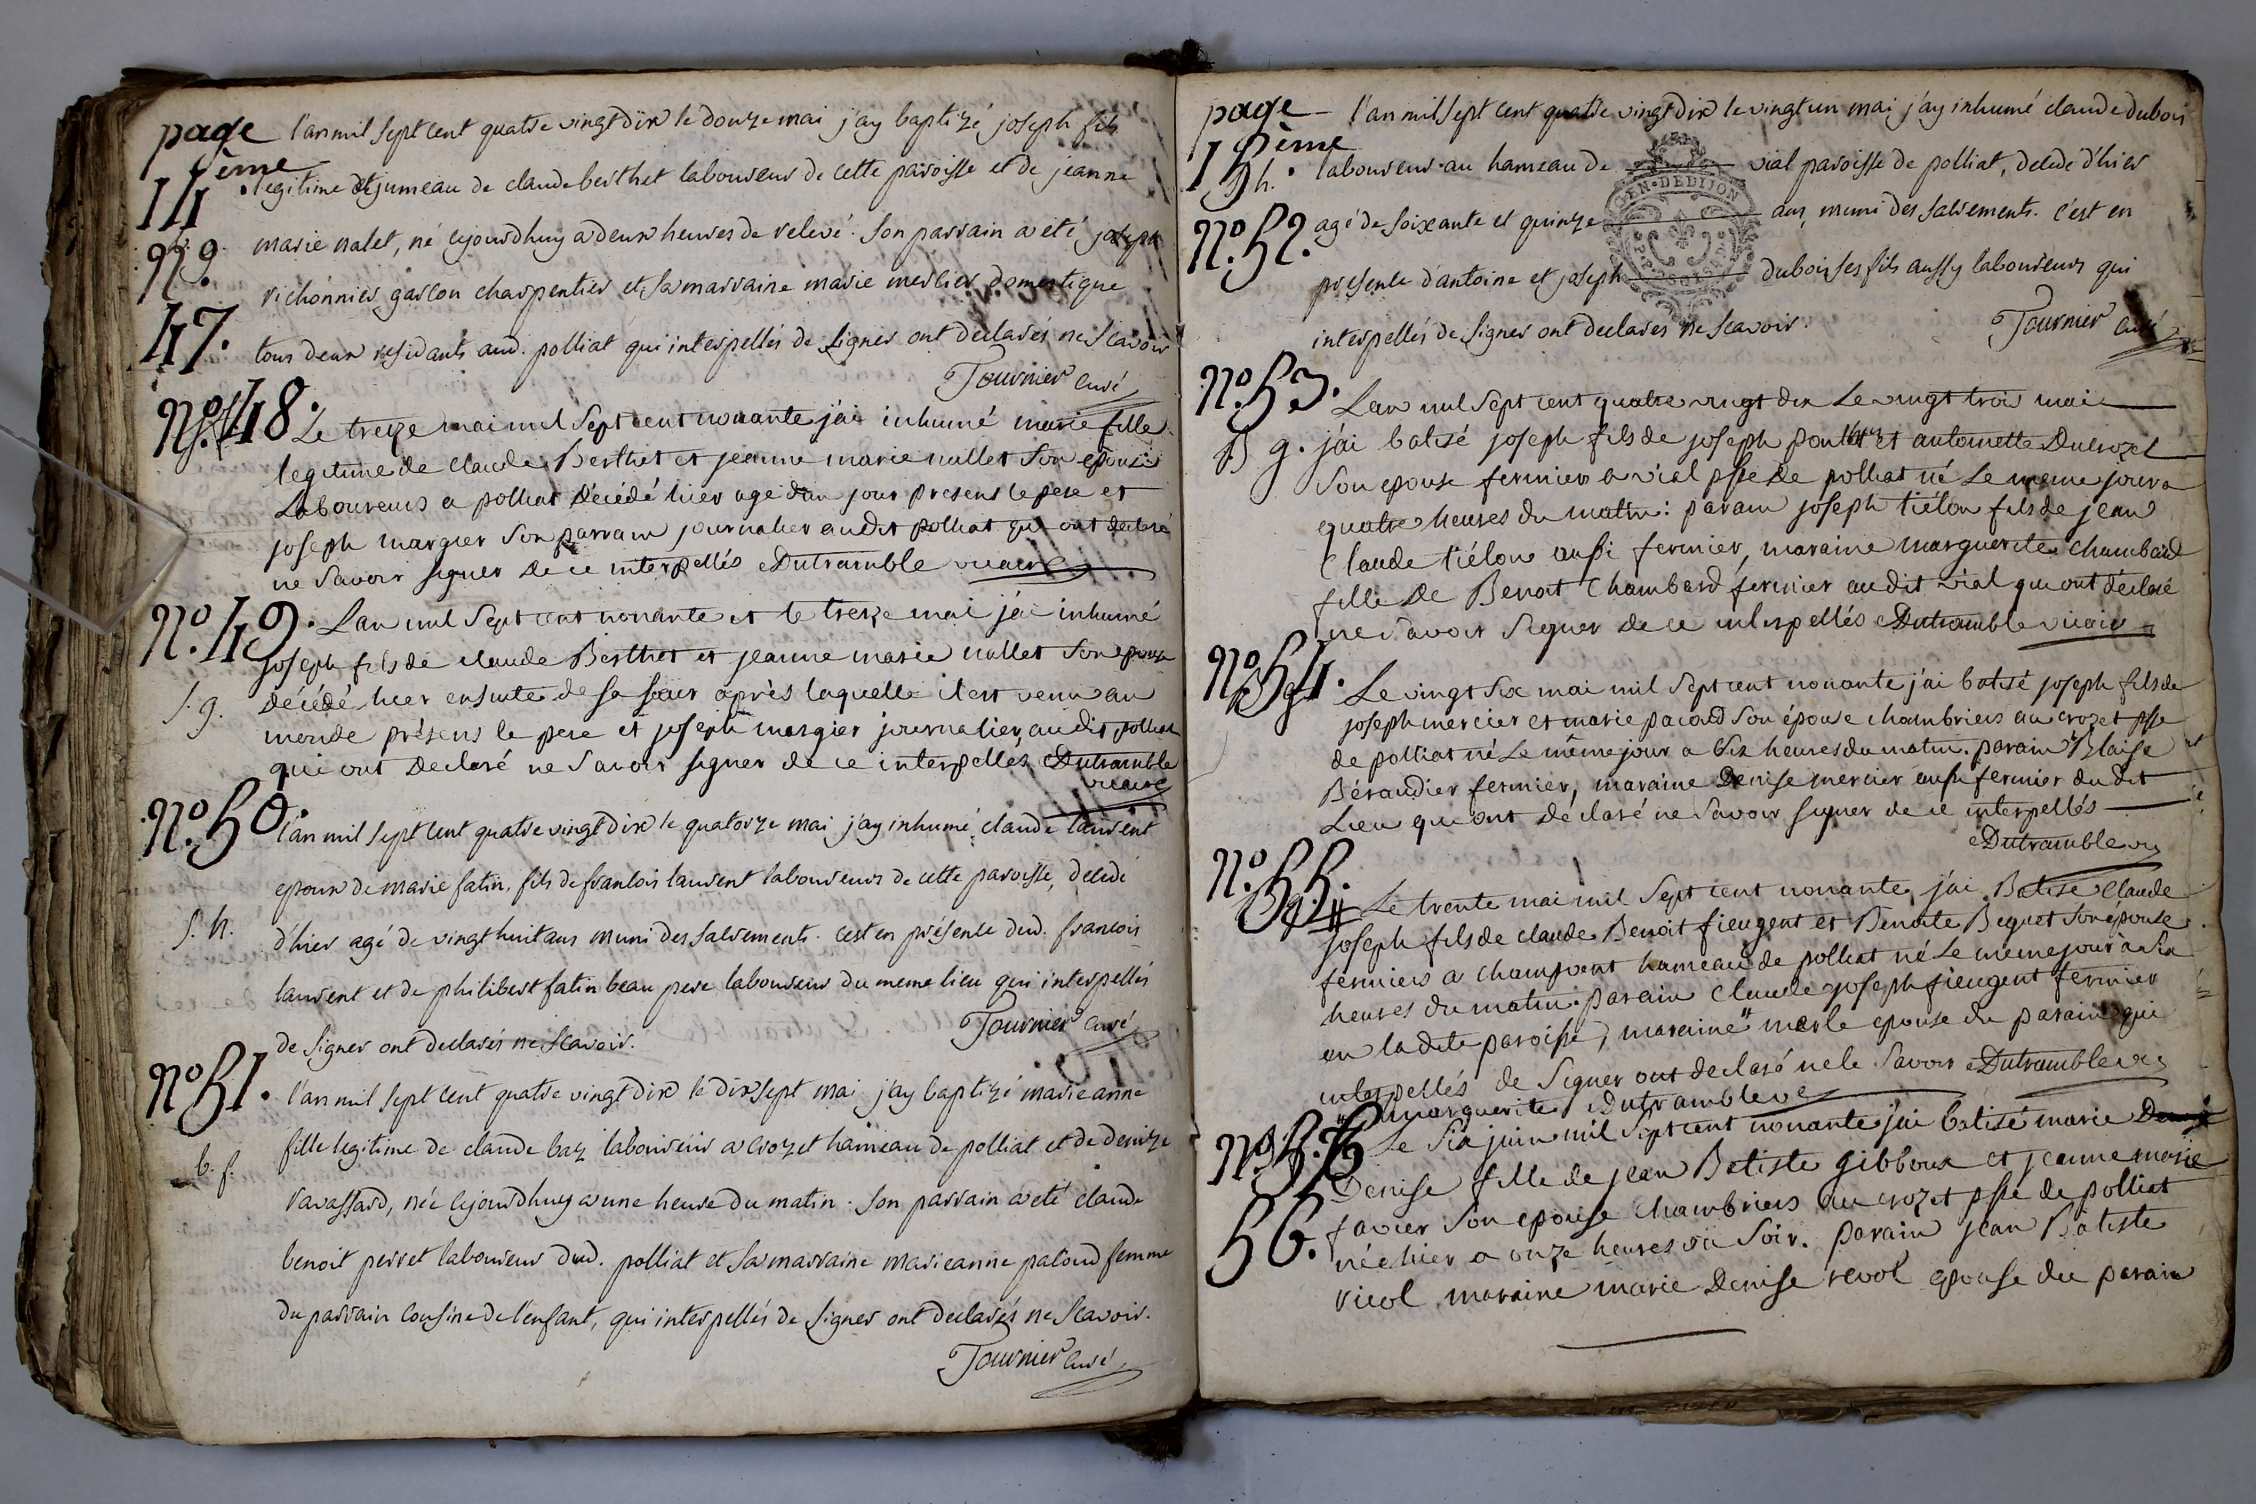 page
14 ème
l'an mil sept cent quatre vingt dix le douze mai j'ay baptizé joseph fils
legitime et jumeau de claude berthet laboureur de cette paroisse et de jeanne
marie nalet, né cejourdhuy a deux heures de relevé. Son parrain a eté joseph
No.
47.
richonnier garcon charpentier et sa marraine marie mercier domestique
tous deux residants aud. polliat qui interpellés de signer ont declarés ne scavoir
Tournier curé
No. 48.
Le treize mai mil sept cent nonante j'ai inhumé marie fille
legitime de claude Berthet et jeanne marie nallet son epouse
Laboureurs a polliat décédé hier agé d'un jour presens le pere et
joseph margier son parrain journalier au dit polliat qui ont declaré
ne savoir signer de ce interpellés Dutramble vicaire
No. 49.
L'an mil sept cent nonante et le treize mai j'ai inhumé
joseph fils de claude Berthet et jeanne marie nallet son epouse
s. g.
décédé hier ensuite de sa soeur après laquelle il est venu au
monde présens le pere et joseph margier journalier, au dit polliat
qui ont declaré ne savoir signer de ce interpellés Dutramble
vicaire
No. 50.
l'an mil sept cent quatre vingt dix le quatorze mai j'ay inhumé claude laurent
epoux de marie fatin, fils de francois laurent laboureurs de cette paroisse, decedé
s. h.
d'hier agé de vingt huit ans muni des sacrements. c'est en présence dud. francois
laurent et de philibert fatin beau pere laboureur du meme lieu qui interpellés
de signer ont declarés ne scavoir.
Tournier curé
No 51.
l'an mil sept cent quatre vingt dix le dix sept mai j'ay baptizé marieanne
fille legitime de claude baz laboureur a crozet hameau de polliat et de denize
b. f.
ravassard, née cejourdhuy a une heure du matin. son parrain a eté claude
benoit perret laboureur dud. polliat et sa marraine marieanne pacoud femme
du parrain cousine de l'enfant, qui interpellés de signer ont declarés ne scavoir.
Tournier curé
page
15 ème
l'an mil sept cent quatre vingt dix le vingt un mai j'ay inhumé claude dubois
s h.
laboureur au hameau de vial paroisse de polliat, decedé d'hier
No. 52.
agé de soixante et quinze ans, muni des sacrements. c'est en
présence d'antoine et joseph dubois ses fils aussy laboureurs qui
interpellés de signer ont declarés ne scavoir.
Tournier curé
EN. DE DIJON
No. 53.
L'an mil sept cent quatre vingt dix Le vingt trois mai
B g.
j'ai batisé joseph fils de joseph et antoinette Ducrozet
son epouse fermier a vial psse de polliat né Le meme jour a
quatre heures du matin: parain joseph tiélon fils de jean
Claude tiélon aussi fermier, maraine marguerite chambard
fille de Benoit Chambard fermier au dit vial qui ont déclaré
ne savoir signer de ce interpellés Dutramble vicaire
No. 54.
B g
Le vingt six mai mil sept cent nonante j'ai batisé joseph fils de
joseph mercier et marie pacoud son épouse chambriers au crozet psse
de polliat né Le même jour a six heures du matin. parain Blaise
Béraudier fermier, maraine Denise mercier aussi fermier du dit
Lieu qui ont déclaré ne savoir signer de ce interpellés
Dutramble vic
No. 55.
B g.
Le trente mai mil sept cent nonante j'ai Batisé Claude
joseph fils de claude Benoit fieugent et Benoite Bequet son épouse
fermiers a champvent hameau de polliat né Le meme jour à six
heures du matin. parain claude joseph fieugent fermier
en la dite paroisse, maraine " merle epouse du parain qui
interpellés de signer ont declaré ne le savoir Dutramble vic
" marguerite Dutramble vic
No.
56.
Le six juin mil sept cent nonante j'ai batisé marie
Denise fille de jean Batiste gibboux et jeanne marie
favier son epouse chambriers au crozet psse de polliat
née hier a onze heures du soir. parain jean Batiste
vicol maraine marie Denise revol epouse du parain